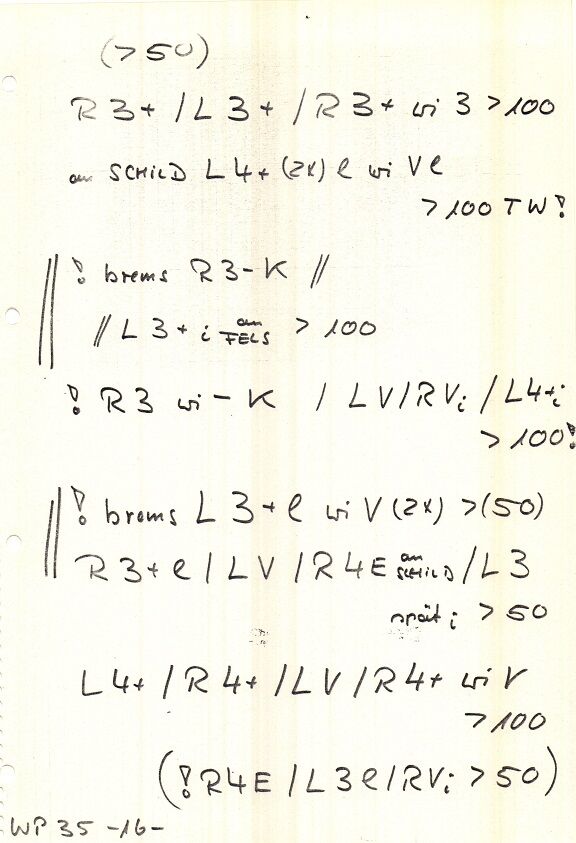 (>50)
R 3+ / L 3+ / R 3+ wi 3 >100
am SCHILD L 4+ (2x) l wi V l
>100 TW!
! brems R 3-K //
// L 3+ i am FELS > 100
! R 3 wi - K / LV/RVi / L4+i
> 100!
! brems L 3+ l wi V (2x) >(50)
R 3+ l / LV / R 4 E am SCHILD / L 3
spät i > 50
L 4+ / R 4+ / LV / R 4+ wi V
> 100
(! R4E / L3 l / RVi > 50)
WP 35 -16-